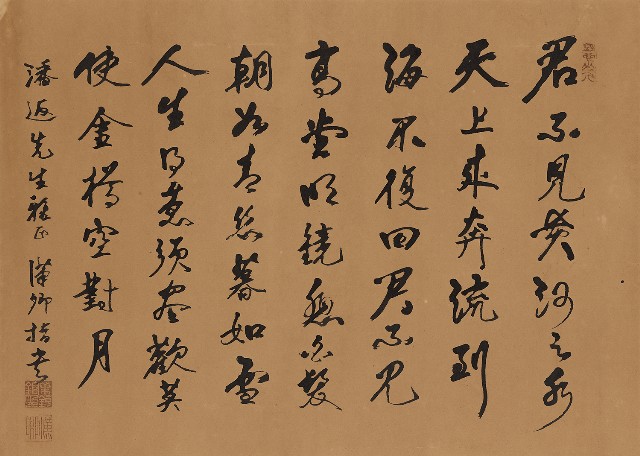 君不見黄河之水
天上來奔流到
海不復回君不見
高堂明鏡悲白髮
朝如青絲暮如雪
人生得意須盡歡莫
使金樽空對月
潘遜先生雅正 漢卿指書